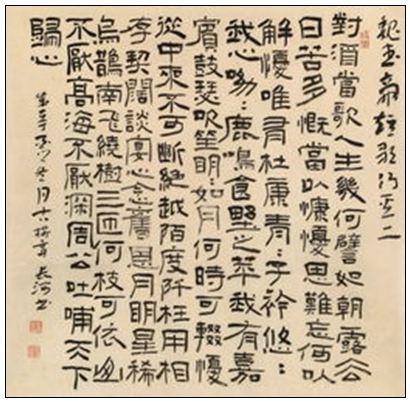 魏武帝短歌行
對酒當歌人生幾何譬如朝露去
日苦多慨當以慷憂思難忘何以
解憂唯有杜康青〻子衿悠〻
我心呦〻鹿鳴食野之苹我有嘉
賓鼓瑟吹笙明〻如月何時可輟憂
從中來不可斷絕越陌度阡枉用相
存契闊談宴心念舊恩月明星稀
烏鵲南飛繞樹三匝何枝可依山
不厭高海不厭深周公吐哺天下
歸心